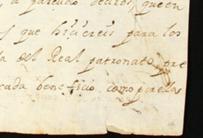 a parecido decir, que en
y que hiciereis para los
la del Real patronato, pre
cada beneficio como puede